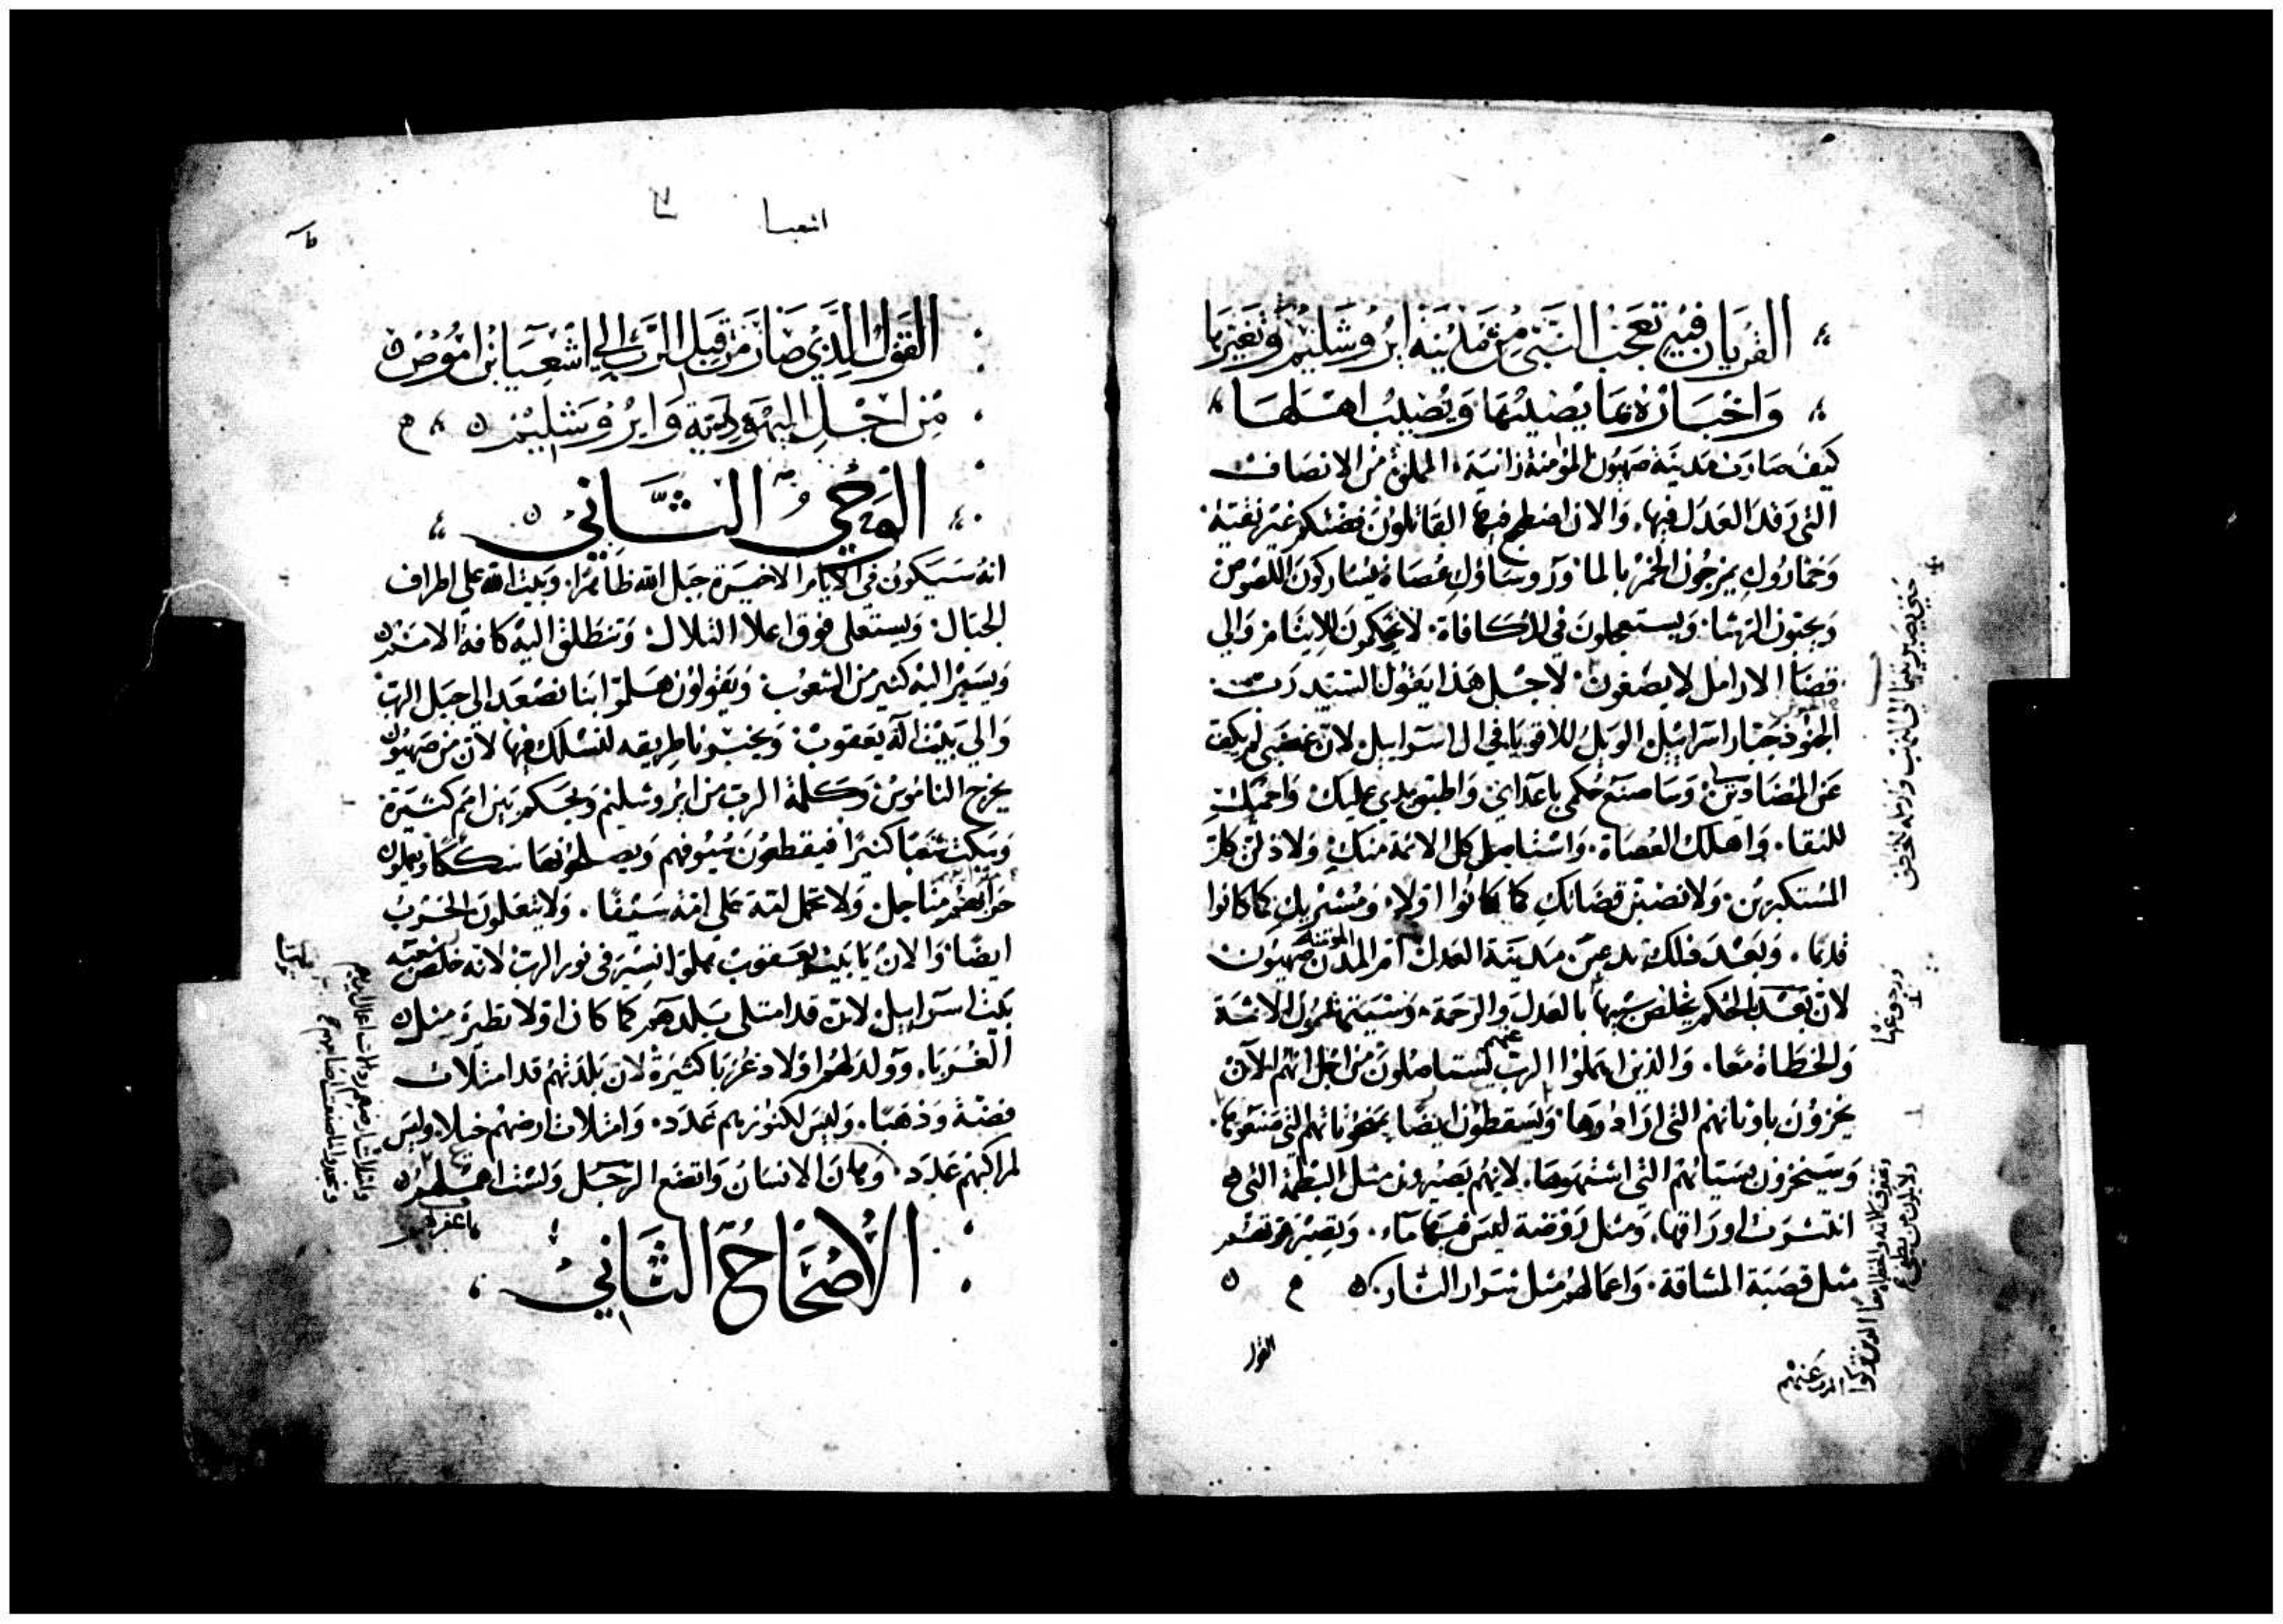 القريان فيه تعجب النبي من مدينة ايروشليم وتغيرها
واخباره بما يصيبها ويصيب اهلها
كيف صارت مدينة صهيون المؤمنة زانية المملؤة من الانصاف
التي رقد العدل فيها. والان اضطجع فيها القاتلون فضتكم غير نقية
وخماروك يمزجون الخمر بالما ورؤساؤك عصاة يشاركون اللصوص
ويحبون الرشا. ويستعجلون في المكافاة. لا يحكمون للايتام والي
قضا الارامل لا يصغون. لاجل هذا يقول السيد رب
الجنود جبار اسراييل الويل للاقويا في ال اسراييل لان غضبي لم يكف
عن المضاددين. وساصنع حكمي باعداي واطبق يدي عليك واحميك
للنقا. واهلك العصاة. واستاصل كل الاثمة منك ولاذلن كل
المستكبرين. ولانصبن قضاتك كما كانوا اولا. ومشيريك كما كانوا
قديما. وبعد ذلك تدعين مدينة العدل ام المدن المؤمنة صهيون
لان بعد الحكم يخلص سبيها بالعدل والرحمة. وسيتهشمون الاثمة
والخطاة معا. والذين اهملوا الرب عنهم يستاصلون من اجل انهم الآن
يخزون باوثانهم التي ارادوها ويسقطون ايضا التي صنعوها.
وسيخزون التي اشتهوها. لانهم يصيرون مثل البطمة التي
انتشرت اوراقها. ومثل روضة ليس فيها ماء. وتصير قوتهم
مثل قصبة المشاقة. واعمالهم مثل شرار النار.
القول
حتى يصير
ورجوعها
الرب عنهم
اشعيا
القول الذي صار من قبل الرب الي اشعيا ابن اموص
من اجل اليهودية وايروشليم
الوحي الثاني
انه سيكون في الايام الاخيرة جبل الله ظاهرا. وبيت الله علي اطراف
الجبال. ويستعلي فوق اعلا التلال. وتنطلق اليه كافة الامم
ويسير اليه كثير من الشعوب. ويقولون هلموا بنا نصعد الي جبل الرب
والي بيت اله يعقوب. ويخبرونا طريقه لنسلك فيها لان من صهيون
يخرج الناموس وكلمة الرب من ايروشليم ويحكم بين امم كثيرة
ويبكت شعبا كثيرا فيقطعون سيوفهم ويصلحونها سككا ويعملون
حرابهم مناجل. ولا تحمل امة علي امة سيفا. ولا يتعلمون الحرب
ايضا والان يا بيت يعقوب هلموا نسير في نور الرب لانه خلص شعبه
بيت اسراييل لان قد امتلي بلدهم كما كان اولا نظيره مثل
الغربا. وولد لهم اولاد غربا كثيرة لان بلدتهم قد امتلات
فضة وذهبا. وليس لكنوزهم عدد. وامتلات ارضهم خيلا وليس
لمراكبهم عدد. وهان الانسان واتضع الرجل ولست اهملهم
الاصحاح الثاني